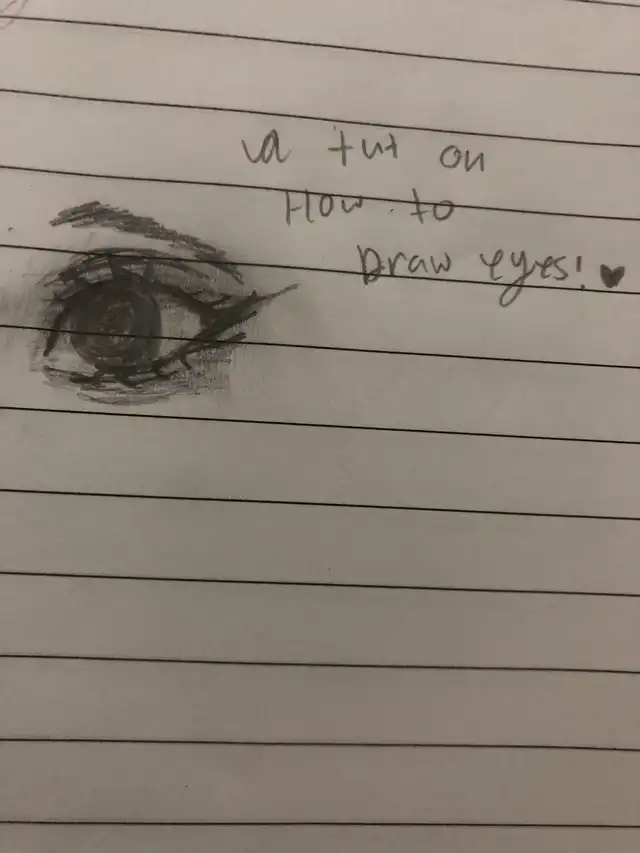 a tut on
How to
Draw eyes! ♥